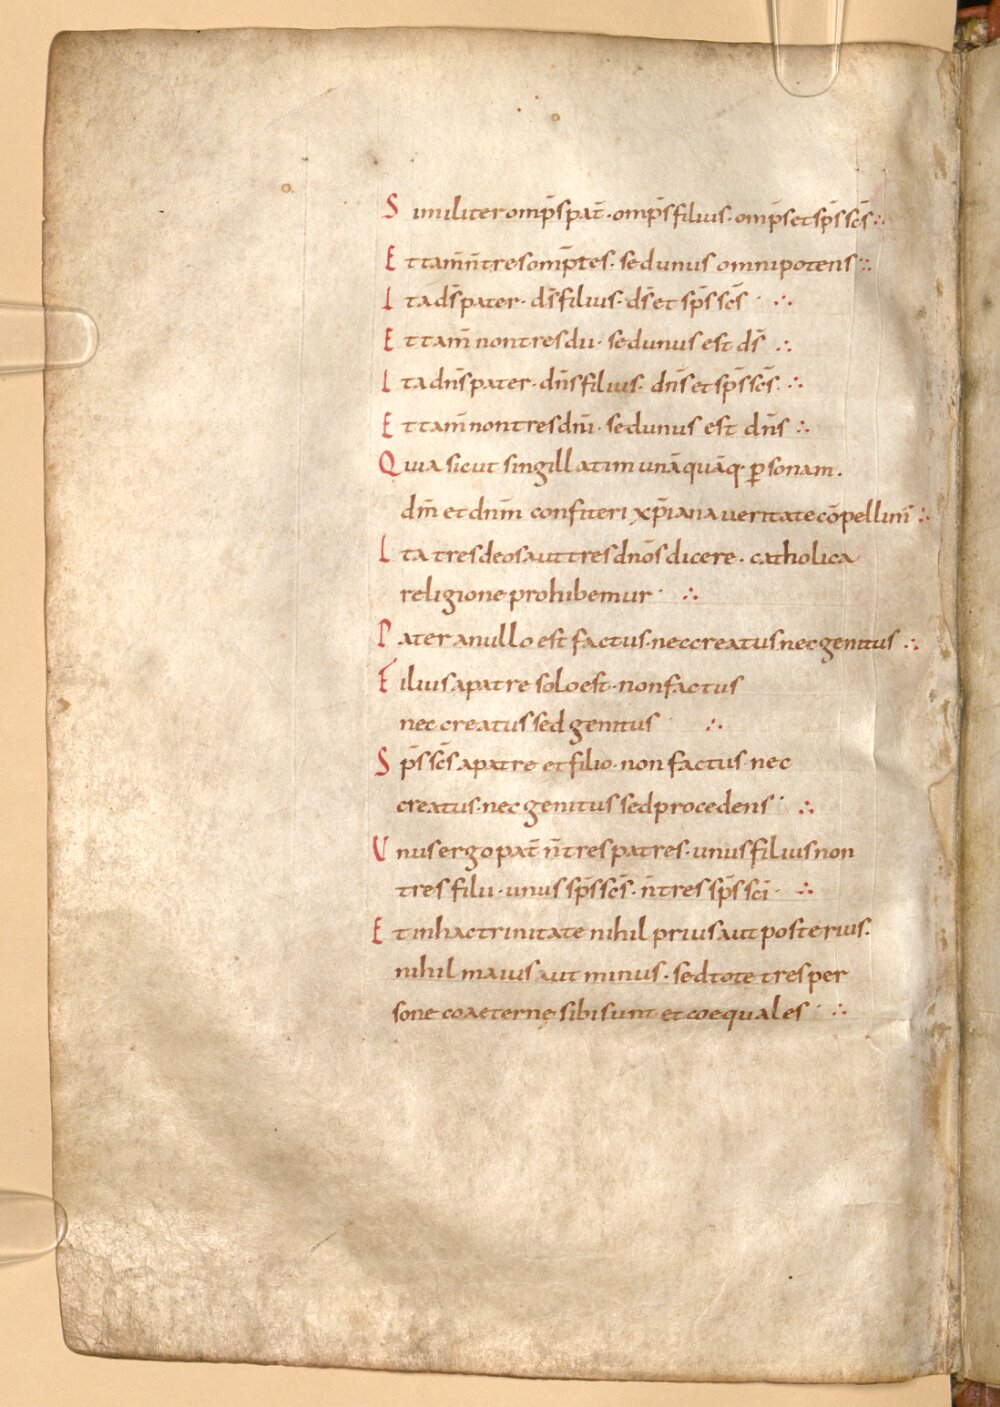 Similiter omp̄s pat̄ · omp̄s filius · omp̄s et sp̄s sc̄s ∴
Et tam̄ n̄ tres omp̄tes · sed unus omnipotens ∴
Ita ds̄ pater · ds̄ filius · ds̄ et sp̄s sc̄s · ∴
Et tam̄ non tres dii · sed unus est ds̄ ∴
Ita dn̄s pater · dn̄s filius · dn̄s et sp̄s sc̄s · ∴
Et tam̄ non tres dn̄i · sed unus est dn̄s ∴
Quia sicut singillatim unāquāq· ꝑsonam .
dm̄ et dnm̄ confiteri xp̄iana ueritate cōpellim̄ ∴
Ita tres deos aut tres dnōs dicere · catholica
religione prohibemur · ∴
Pater a nullo est factus · nec creatus nec genitus ∴
Filius a patre solo est · non factus
nec creatus sed genitus · ∴
Sp̄s sc̄s a patre et filio · non factus nec
creatus · nec genitus sed procedens · ∴
Unus ergo pat̄ n̄ tres patres · unus filius non
tres filii · unus sp̄s sc̄s · n̄ tres sp̄s sci · ∴
Et in hac trinitate nihil prius aut posterius .
nihil maius aut minus · sed tote tres per
sone coaeternę sibi sunt et coequales · ∴